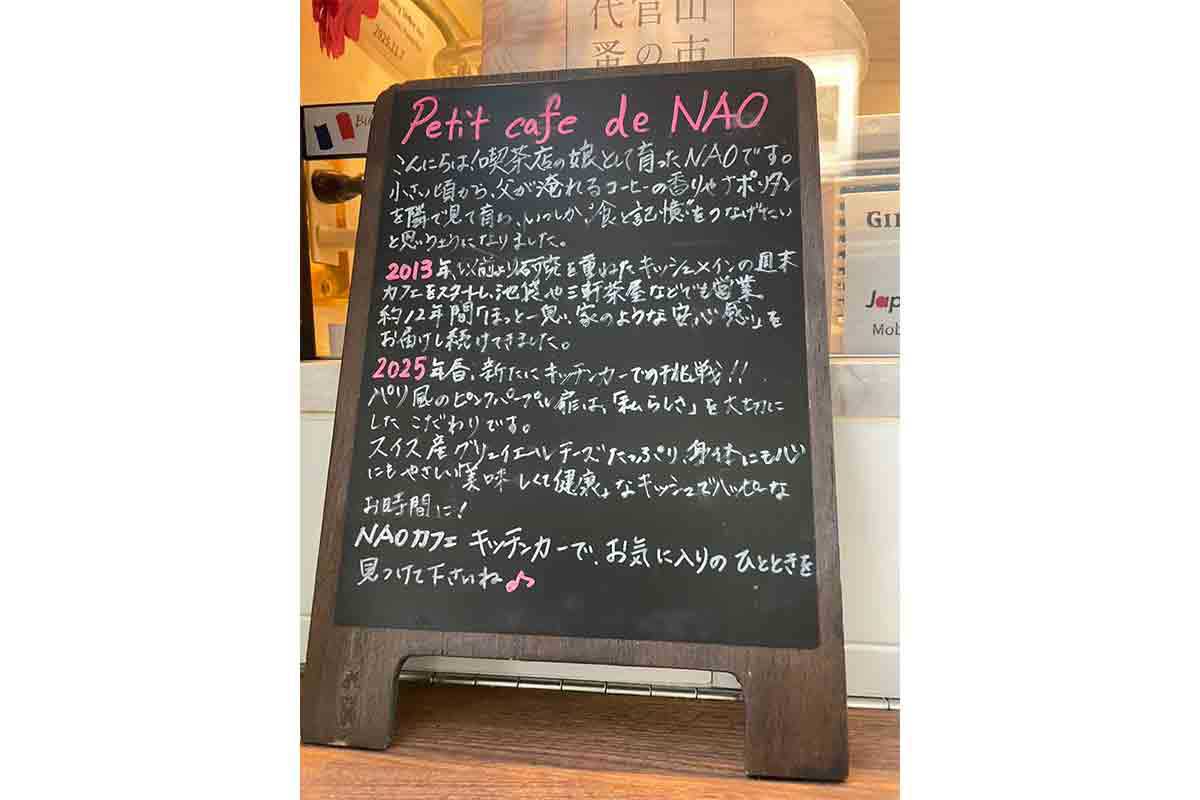 2025.11.7
代官山
蚤の市
Petit cafe de NAO
こんにちは!喫茶店の娘として育ったNAOです。
小さい頃から、父が淹れるコーヒーの香りやナポリタン
を隣で見て育ち、いつしか、"食と記憶"をつなげたい
と思うようになりました。
2013年、以前より研究を重ねたキッシュメインの週末
カフェをスタートし、池袋や三軒茶屋などでも営業
約12年間「ほっと一息、家のような安心感」を
お届けし続けてきました。
2025年春、新たにキッチンカーでの挑戦!!
パリ風のピンクパープル扉は、「私らしさ」を大切に
したこだわりです。
スイス産グリュイエールチーズたっぷり、身体にも心
にもやさしい「美味しくて健康」なキッシュでハッピーな
お時間に!
NAOカフェ キッチンカーで、お気に入りのひとときを
見つけて下さいね♪
Jap
Mob